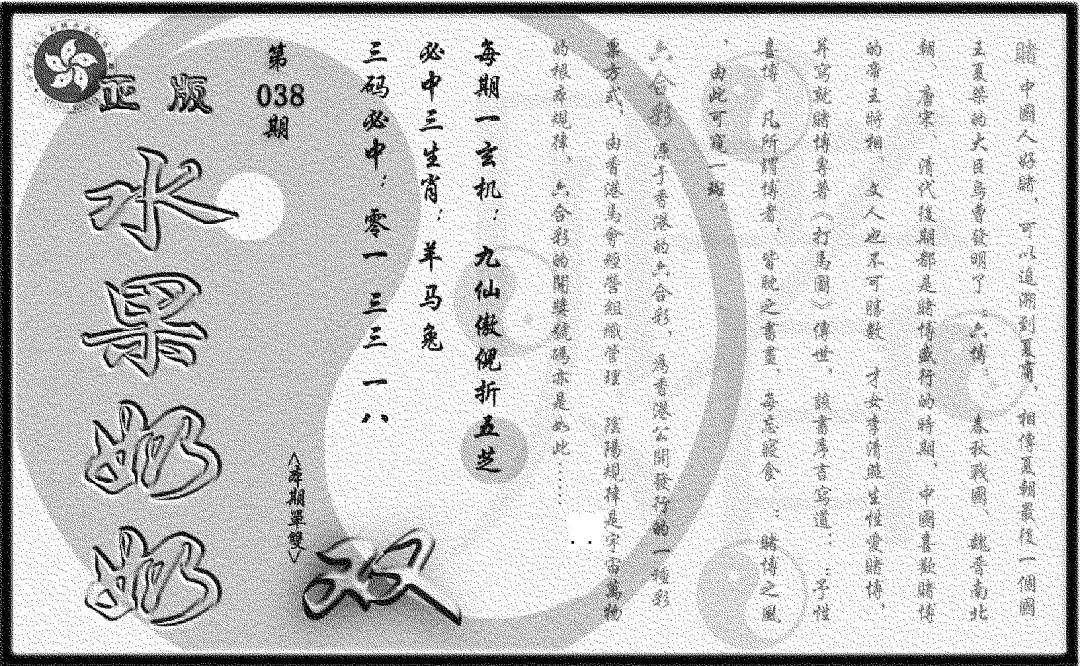 賭 中國人好賭，可以追溯到夏商，相傳夏朝最後一個國
王夏桀的大臣烏曹發明了“六博” 春秋戰國、魏晉南北
朝、唐宋、清代後期都是賭博盛行的時期，中國喜歡賭博
的帝王將相 文人也不可勝數 才女李清照生性愛賭博，
并寫就賭博專著《打馬圖》傳世，該書序言寫道：“予性
喜博，凡所謂博者，皆耽之晝夜，每忘寢食”；賭博之風
，由此可窺一斑。
六合彩 源于香港的六合彩，為香港公開發行的一種彩
票方式，由香港馬會經營組織管理 陰陽規律是宇宙萬物
的根本規律，六合彩的開獎號碼亦是如此……
每期一玄机：九仙傲倪折五芝
必中三生肖：羊马兔
三码必中：零一 三三 一八
第038期
<本期單雙>
双
正版
水果奶奶